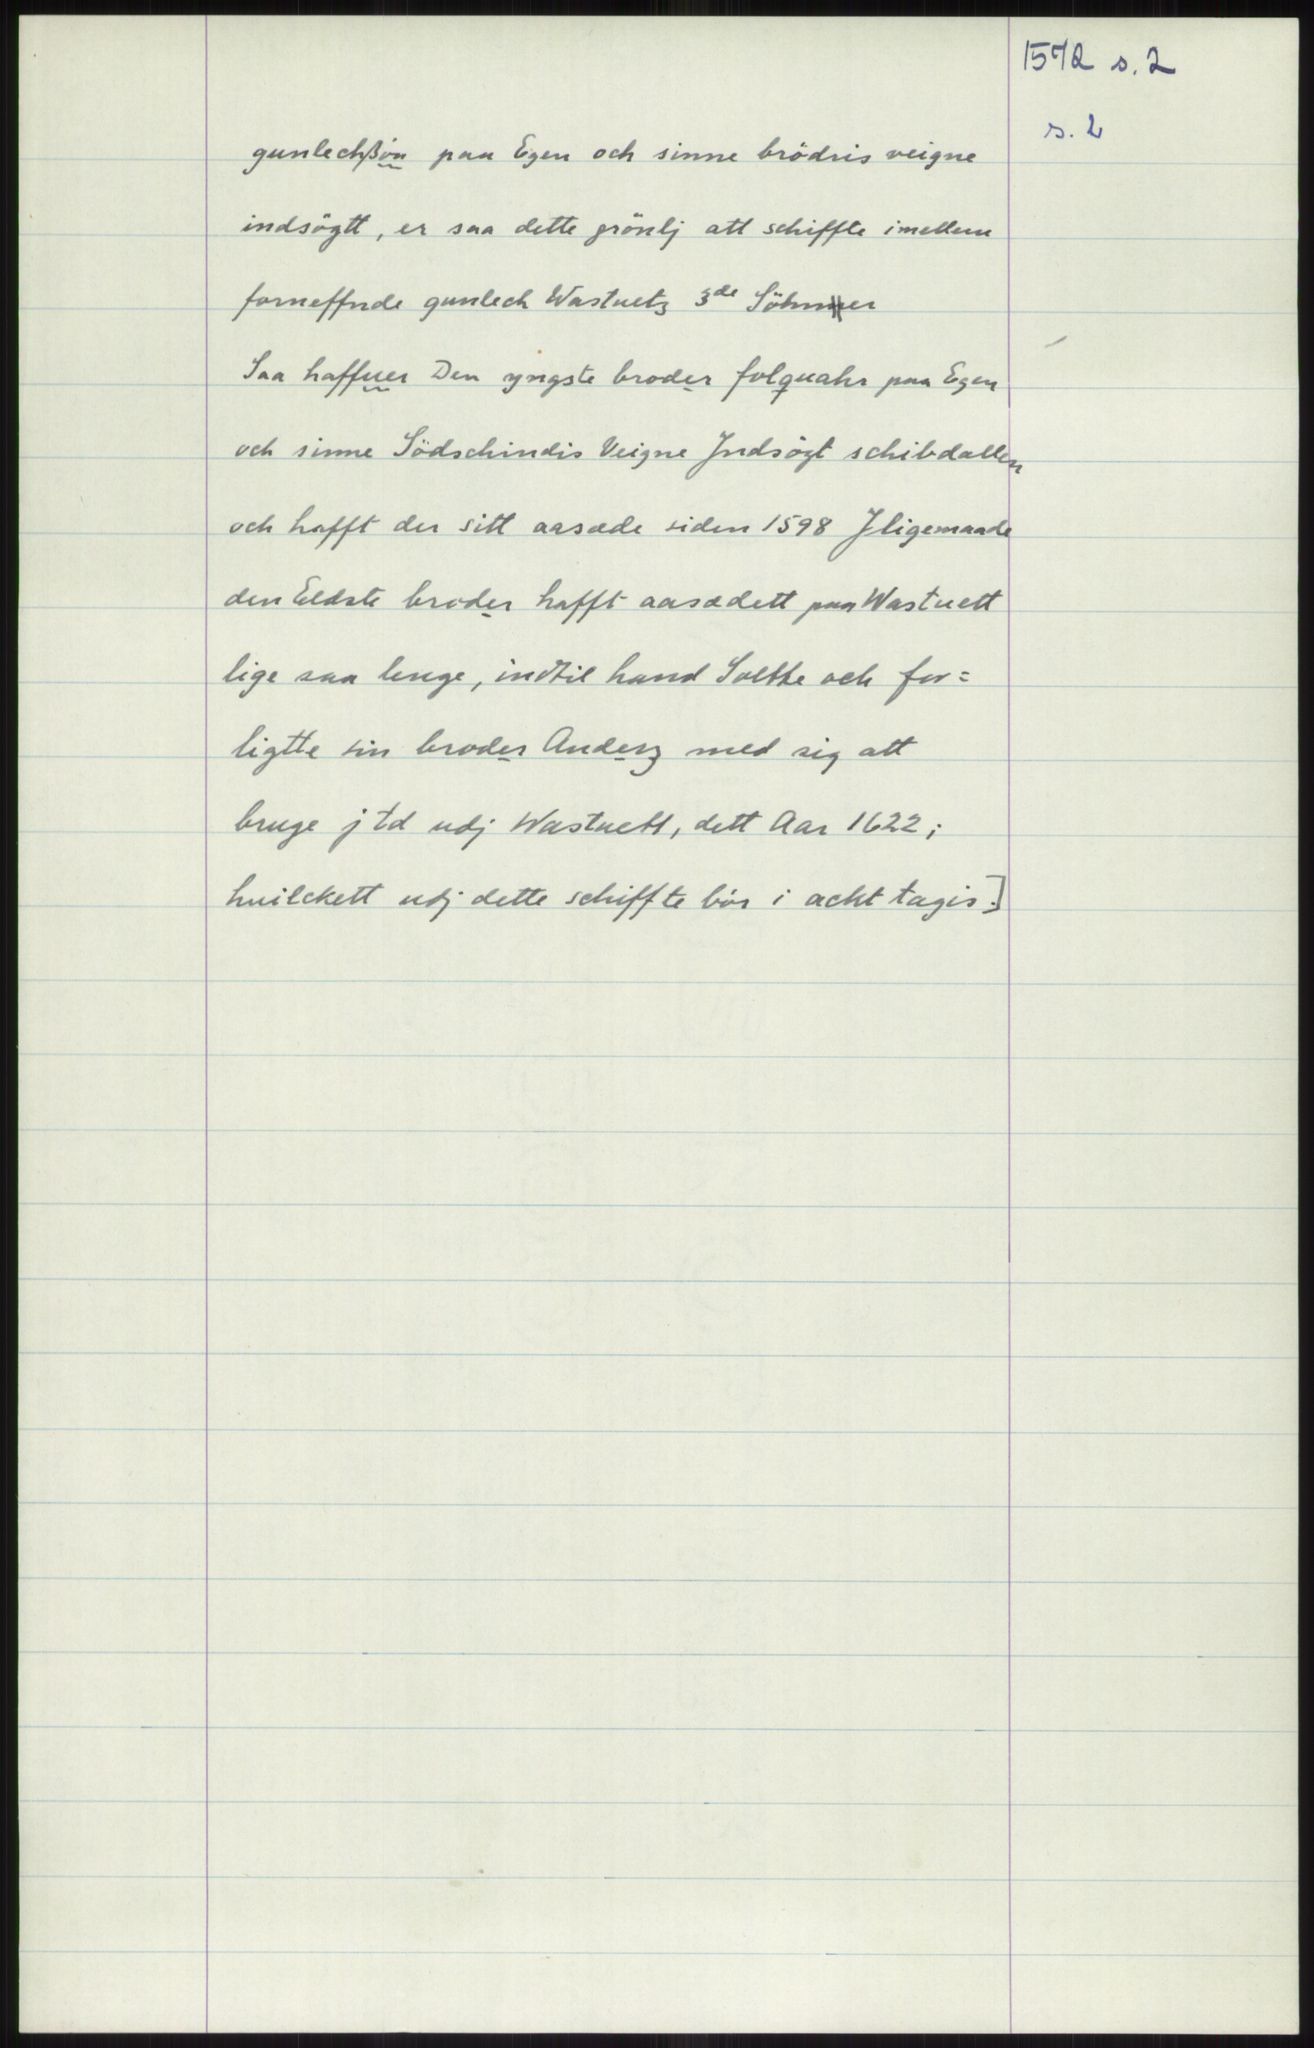 1572 s. 2
s. 2
gunlechßön paa Egen och sinne brödris veigne
indsögtt, er saa dette grönlj att schiffte imellem
forneffnde gunlech Wastuetz 3de Söhner
Saa haffuer Den yngste broder folquahr paa Egen
och sinne Södschindis Veigne Jndsögt schibdallen
och hafft der sitt aasæde siden 1598 Jligemaade
den Eldste broder hafft aasædett paa Wastuett
lige saa lenge, indtil hand Soltte och for=
ligtte sin broder Anderz med sig att
bruge j td udj Wastuett, dett Aar 1622;
huilckett udj dette schiffte bör i acht tagis.]